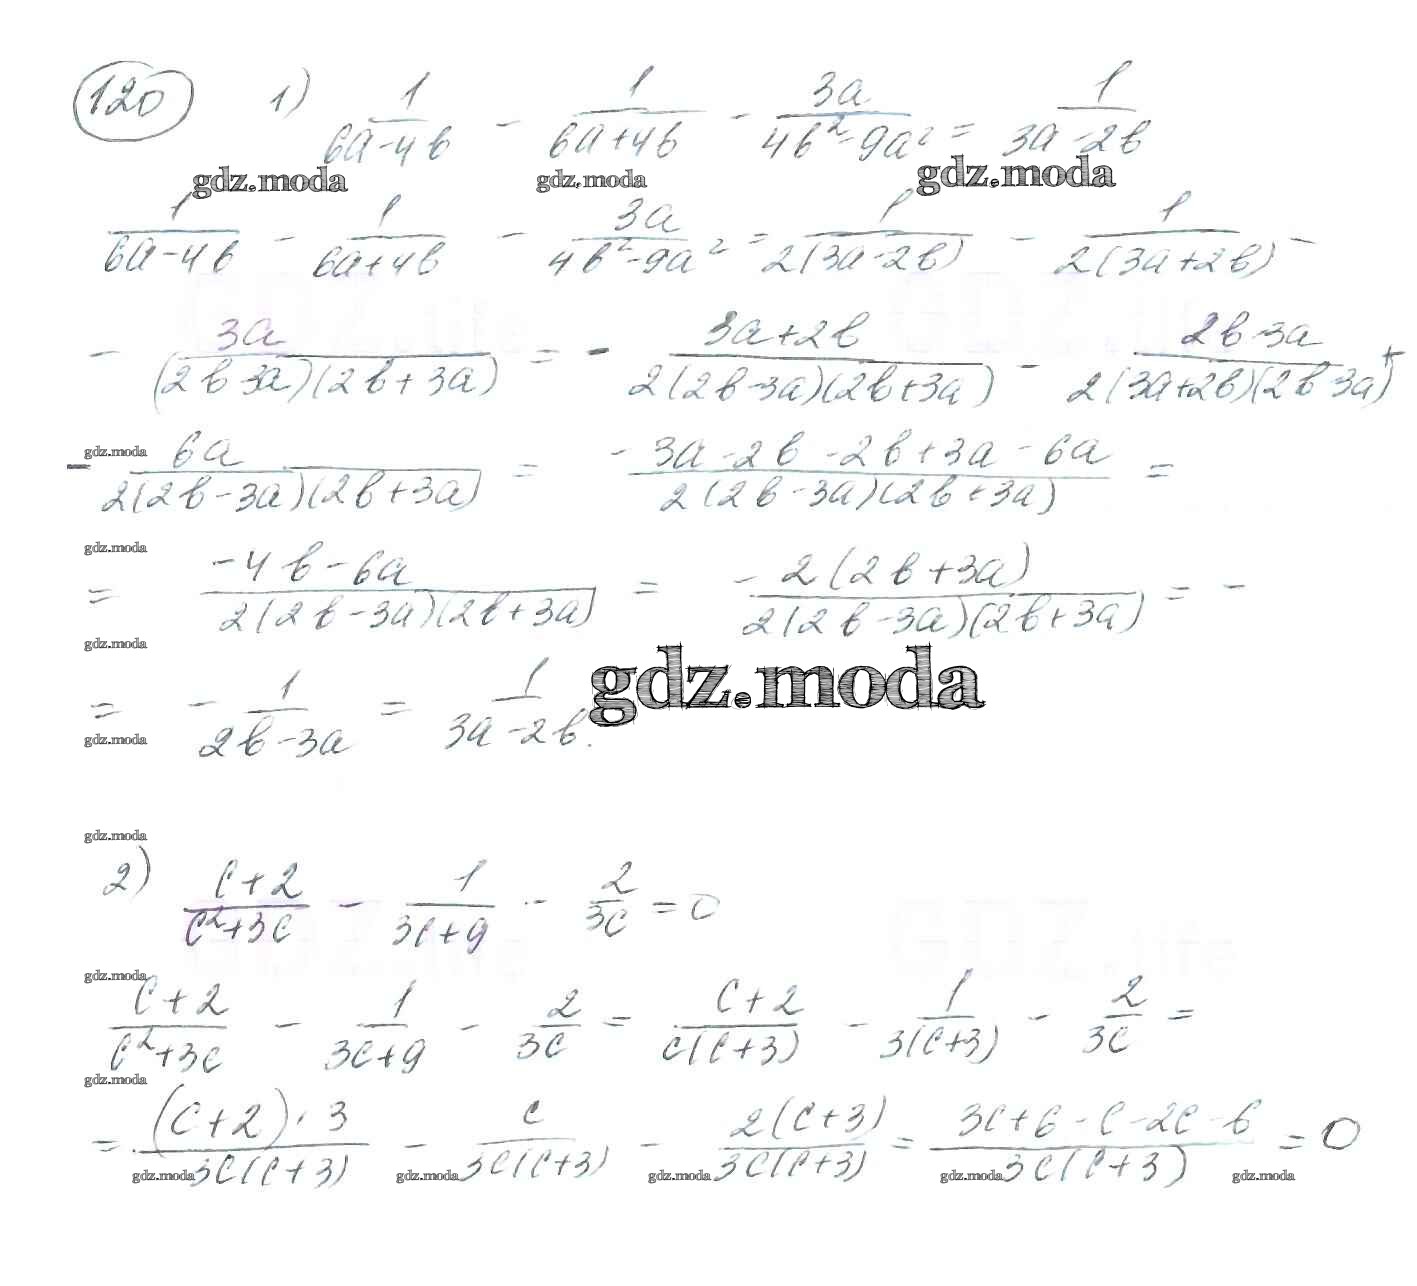 120 1) 1/(6a-4b) - 1/(6a+4b) - 3a/(4b²-9a²) = 1/(3a-2b)
gdz.moda gdz.moda gdz.moda
1/(6a-4b) - 1/(6a+4b) - 3a/(4b²-9a²) = 1/(2(3a-2b)) - 1/(2(3a+2b)) -
GDZ.life GDZ.life
- 3a/((2b-3a)(2b+3a)) = - (3a+2b)/(2(2b-3a)(2b+3a)) - (2b-3a)/(2(3a+2b)(2b-3a)) +
gdz.moda
- 6a/(2(2b-3a)(2b+3a)) = (-3a-2b-2b+3a-6a)/(2(2b-3a)(2b+3a)) =
gdz.moda
= (-4b-6a)/(2(2b-3a)(2b+3a)) = - 2(2b+3a)/(2(2b-3a)(2b+3a)) = -
gdz.moda
gdz.moda
= - 1/(2b-3a) = 1/(3a-2b).
gdz.moda
gdz.moda
2) (c+2)/(c²+3c) - 1/(3c+9) - 2/3c = 0
GDZ.life GDZ.life
gdz.moda
(c+2)/(c²+3c) - 1/(3c+9) - 2/3c = (c+2)/(c(c+3)) - 1/(3(c+3)) - 2/3c =
gdz.moda
= ((c+2)·3)/(3c(c+3)) - c/(3c(c+3)) - 2(c+3)/(3c(c+3)) = (3c+6-c-2c-6)/(3c(c+3)) = 0
gdz.moda gdz.moda gdz.moda gdz.moda gdz.moda